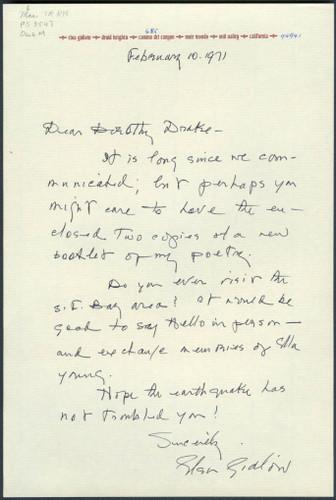 PS 3547
685
elsa gidlow druid heights camino del canyon muir woods mill valley california 94941
February 10. 1971
Dear Dorothy Drake—
It is long since we com-
municated; but perhaps you
might care to have the en-
closed two copies of a new
booklet of my poetry.
Do you ever visit the
S.F. Bay area? It would be
good to say hello in person—
and exchange memories of Ella
Young.
Hope the earthquake has
not troubled you!
Sincerely
Elsa Gidlow